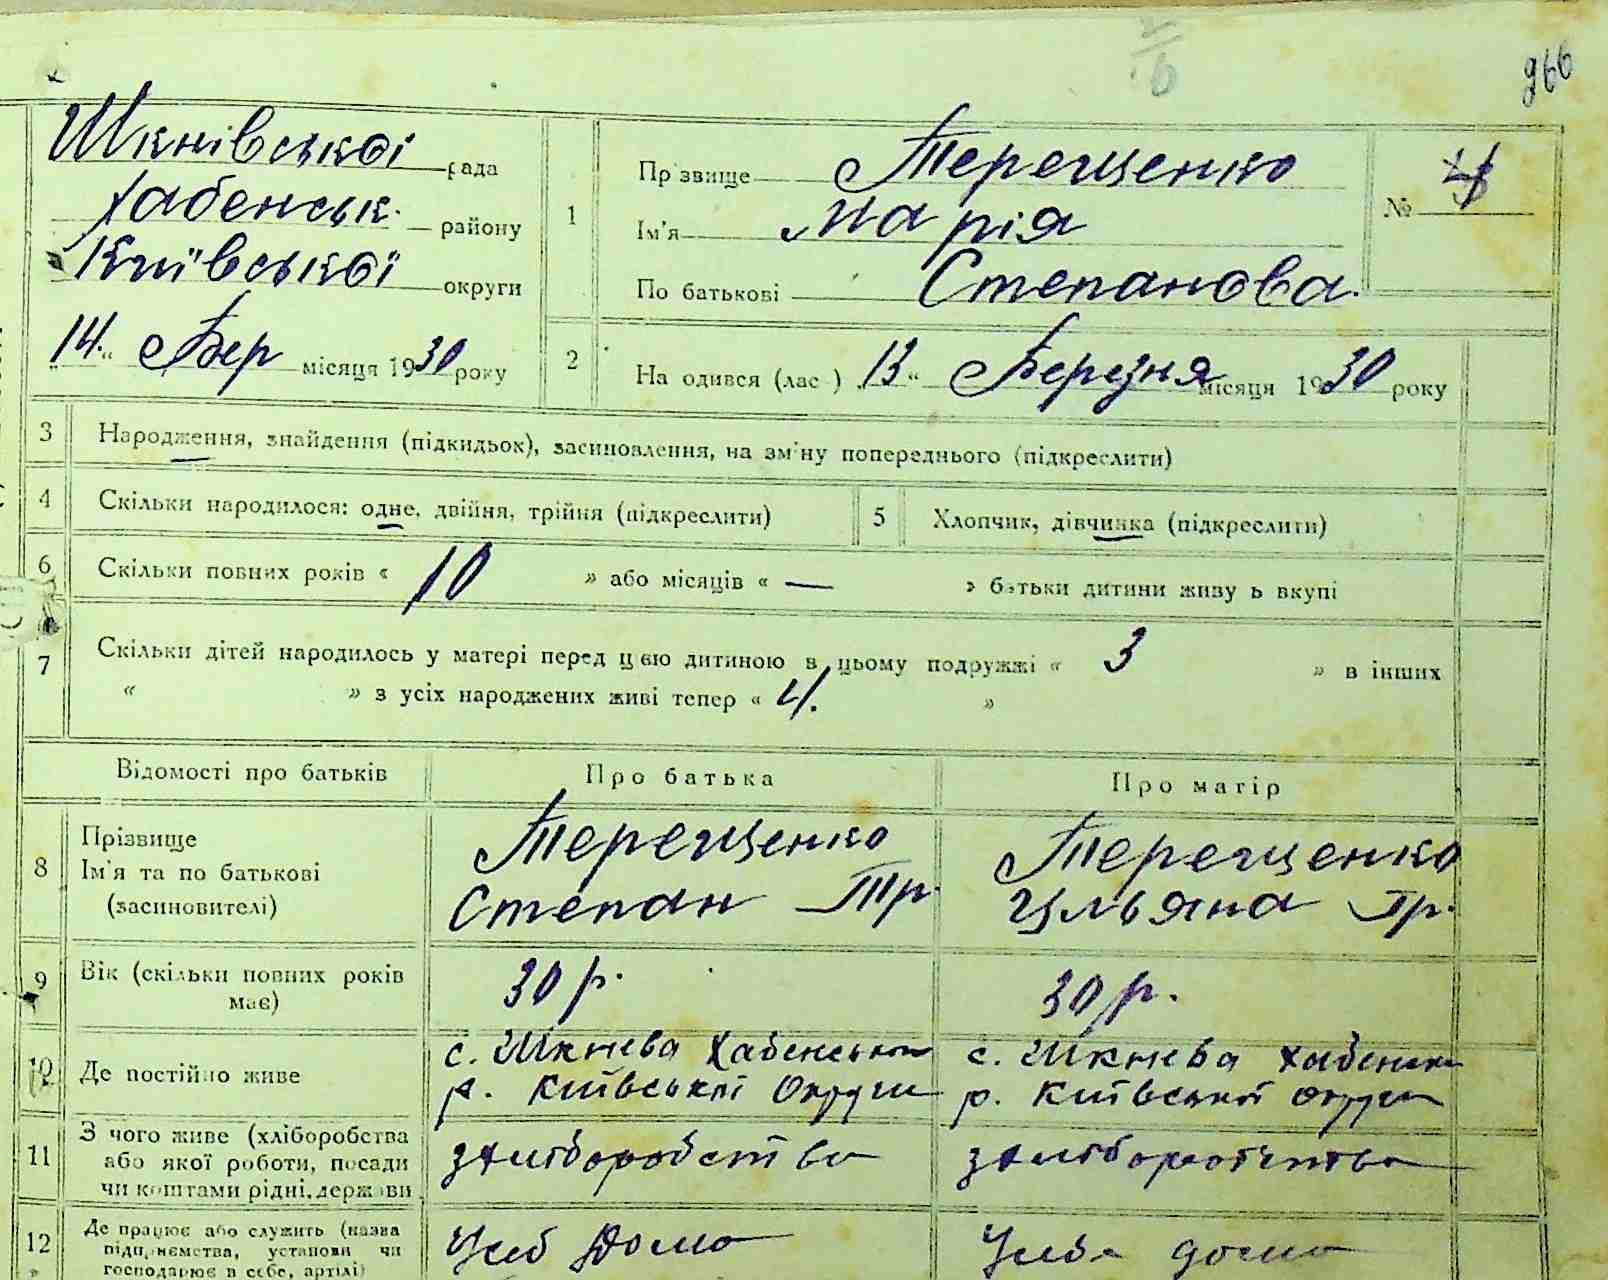 266
Шкнівської рада
Хабенськ. району
Київської округи
14. Бер місяця 1930 року
1 Прізвище Терещенко
Ім'я Марія
По батькові Степанова.
№
2 На одився (лас ) 13 Березня місяця 1930 року
3 Народження, знайдення (підкидьох), засиновлення, на зміну попереднього (підкреслити)
4 Скільки народилося: одне, двійня, трійня (підкреслити)
5 Хлопчик, дівчинка (підкреслити)
6 Скільки повних років « 10 » або місяців « — » батьки дитини живу ь вкупі
7 Скільки дітей народилось у матері перед цією дитиною в цьому подружжі « 3 » в інших
« » з усіх народжених живі тепер « 4. »
Відомості про батьків Про батька Про матір
8 Прізвище Ім'я та по батькові (засиновителі)
Терещенко
Степан Тр.
Терещенко
Ульяна Гр.
9 Вік (скільки повних років має)
30 р.
30 р.
10 Де постійно живе
с. Шкнева Хабенськои
р. Київської Округи
с. Шкнева Хабенськ
р. Київської округи
11 З чого живе (хліборобства
або якої роботи, посади
чи коштами рідні, держави
з хліборобства
з хліборобства
12 Де працює або служить (назва
підприємства, установи чи
господарює в себе, артілі)
Усеб Дома
Усебе дома